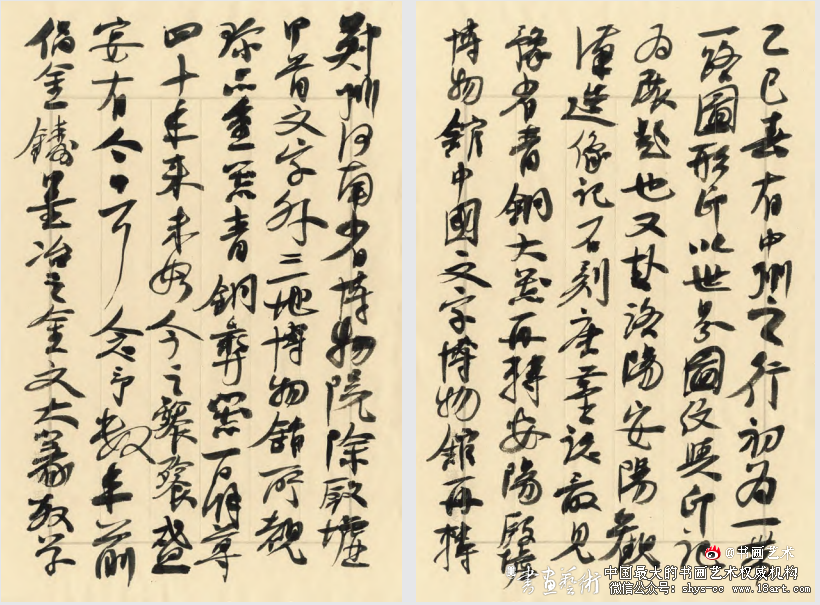 乙巳春有中州之行初为一带
一路圖形印以世界圖與印记
为展题也又赴洛陽安陽觀
漢造像记石刻唐墓誌最见
豫省青銅大器再轉安陽殷墟
博物館中國文字博物館再轉
鄭州河南省博物院除殷墟
甲骨文字外三地博物館所觀
珍品重器青銅彝器百餘尊
四十年来未如今之饕餮盛
宴有今日耳念予數年前
倡金鑄墨冶之金文大篆教学
@书画艺术
書畫藝術
中国最大的书画艺术权威机构
微信公众号：shys-cc www.18art.com